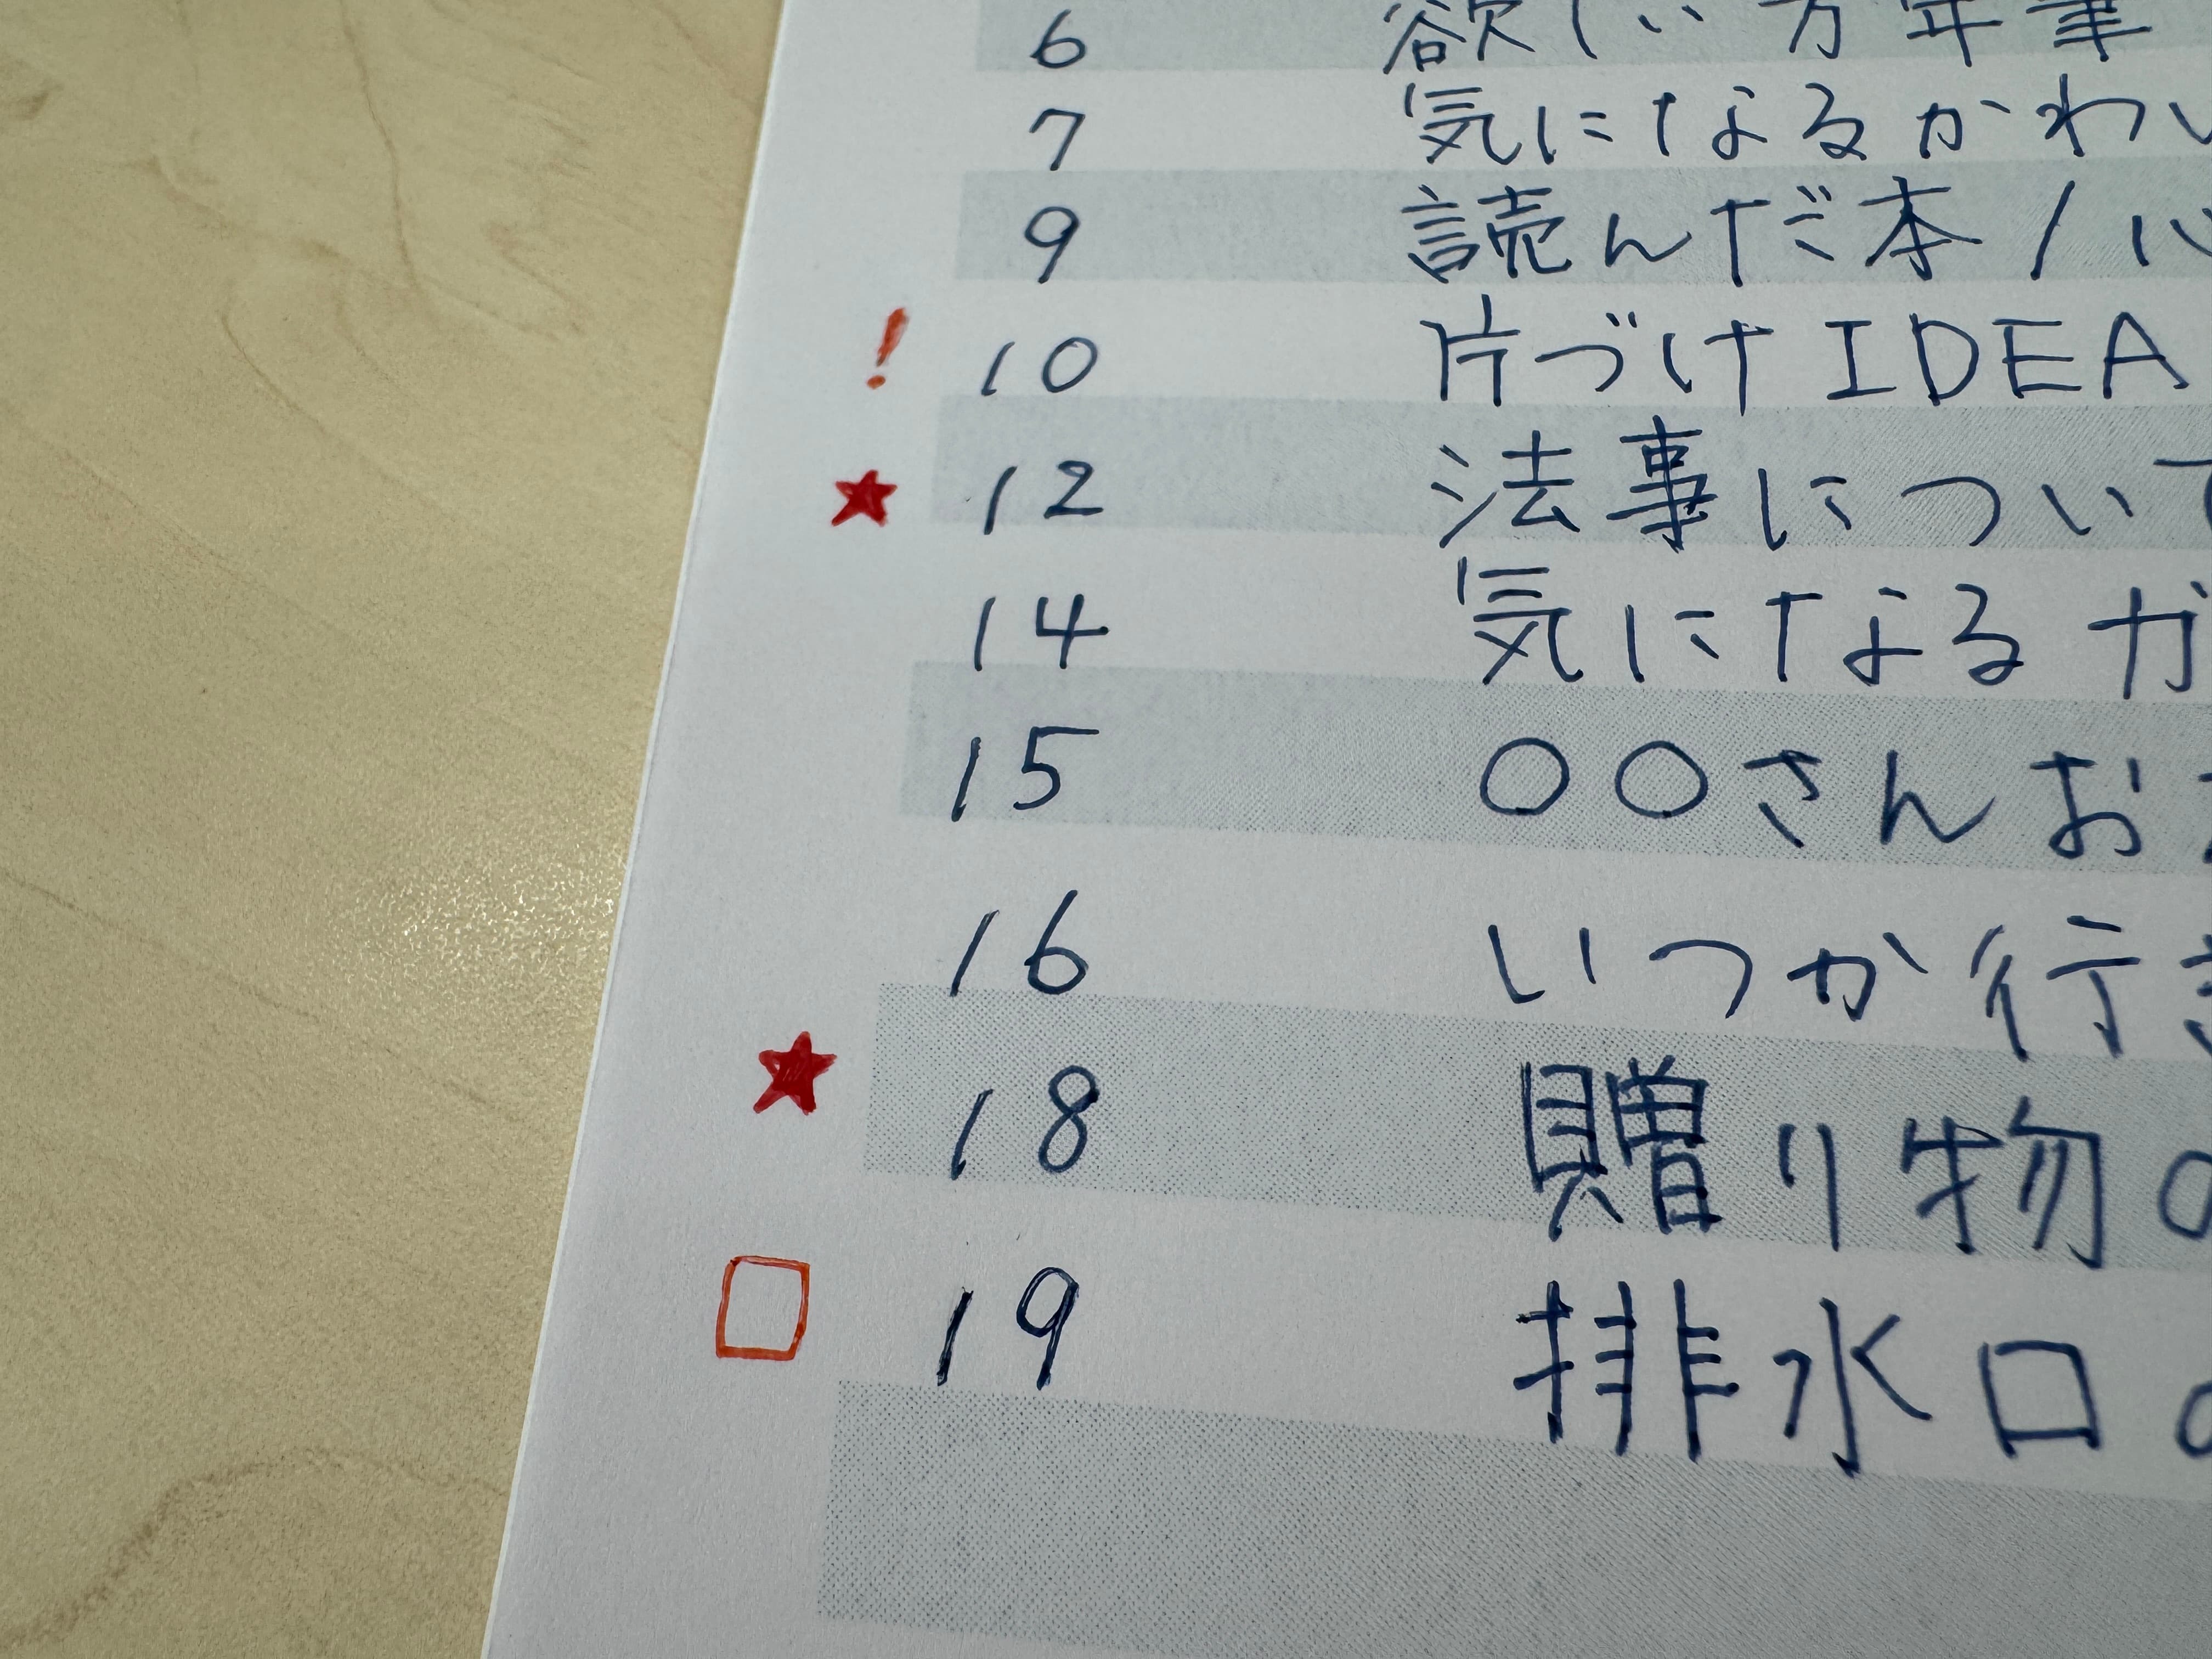 6 欲しい万年筆
7 気になるかわい
9 読んだ本/
! 10 片づけIDEA
★ 12 法事について
14 気になる
15 〇〇さんお
16 いつか行き
★ 18 贈り物の
□ 19 排水口の